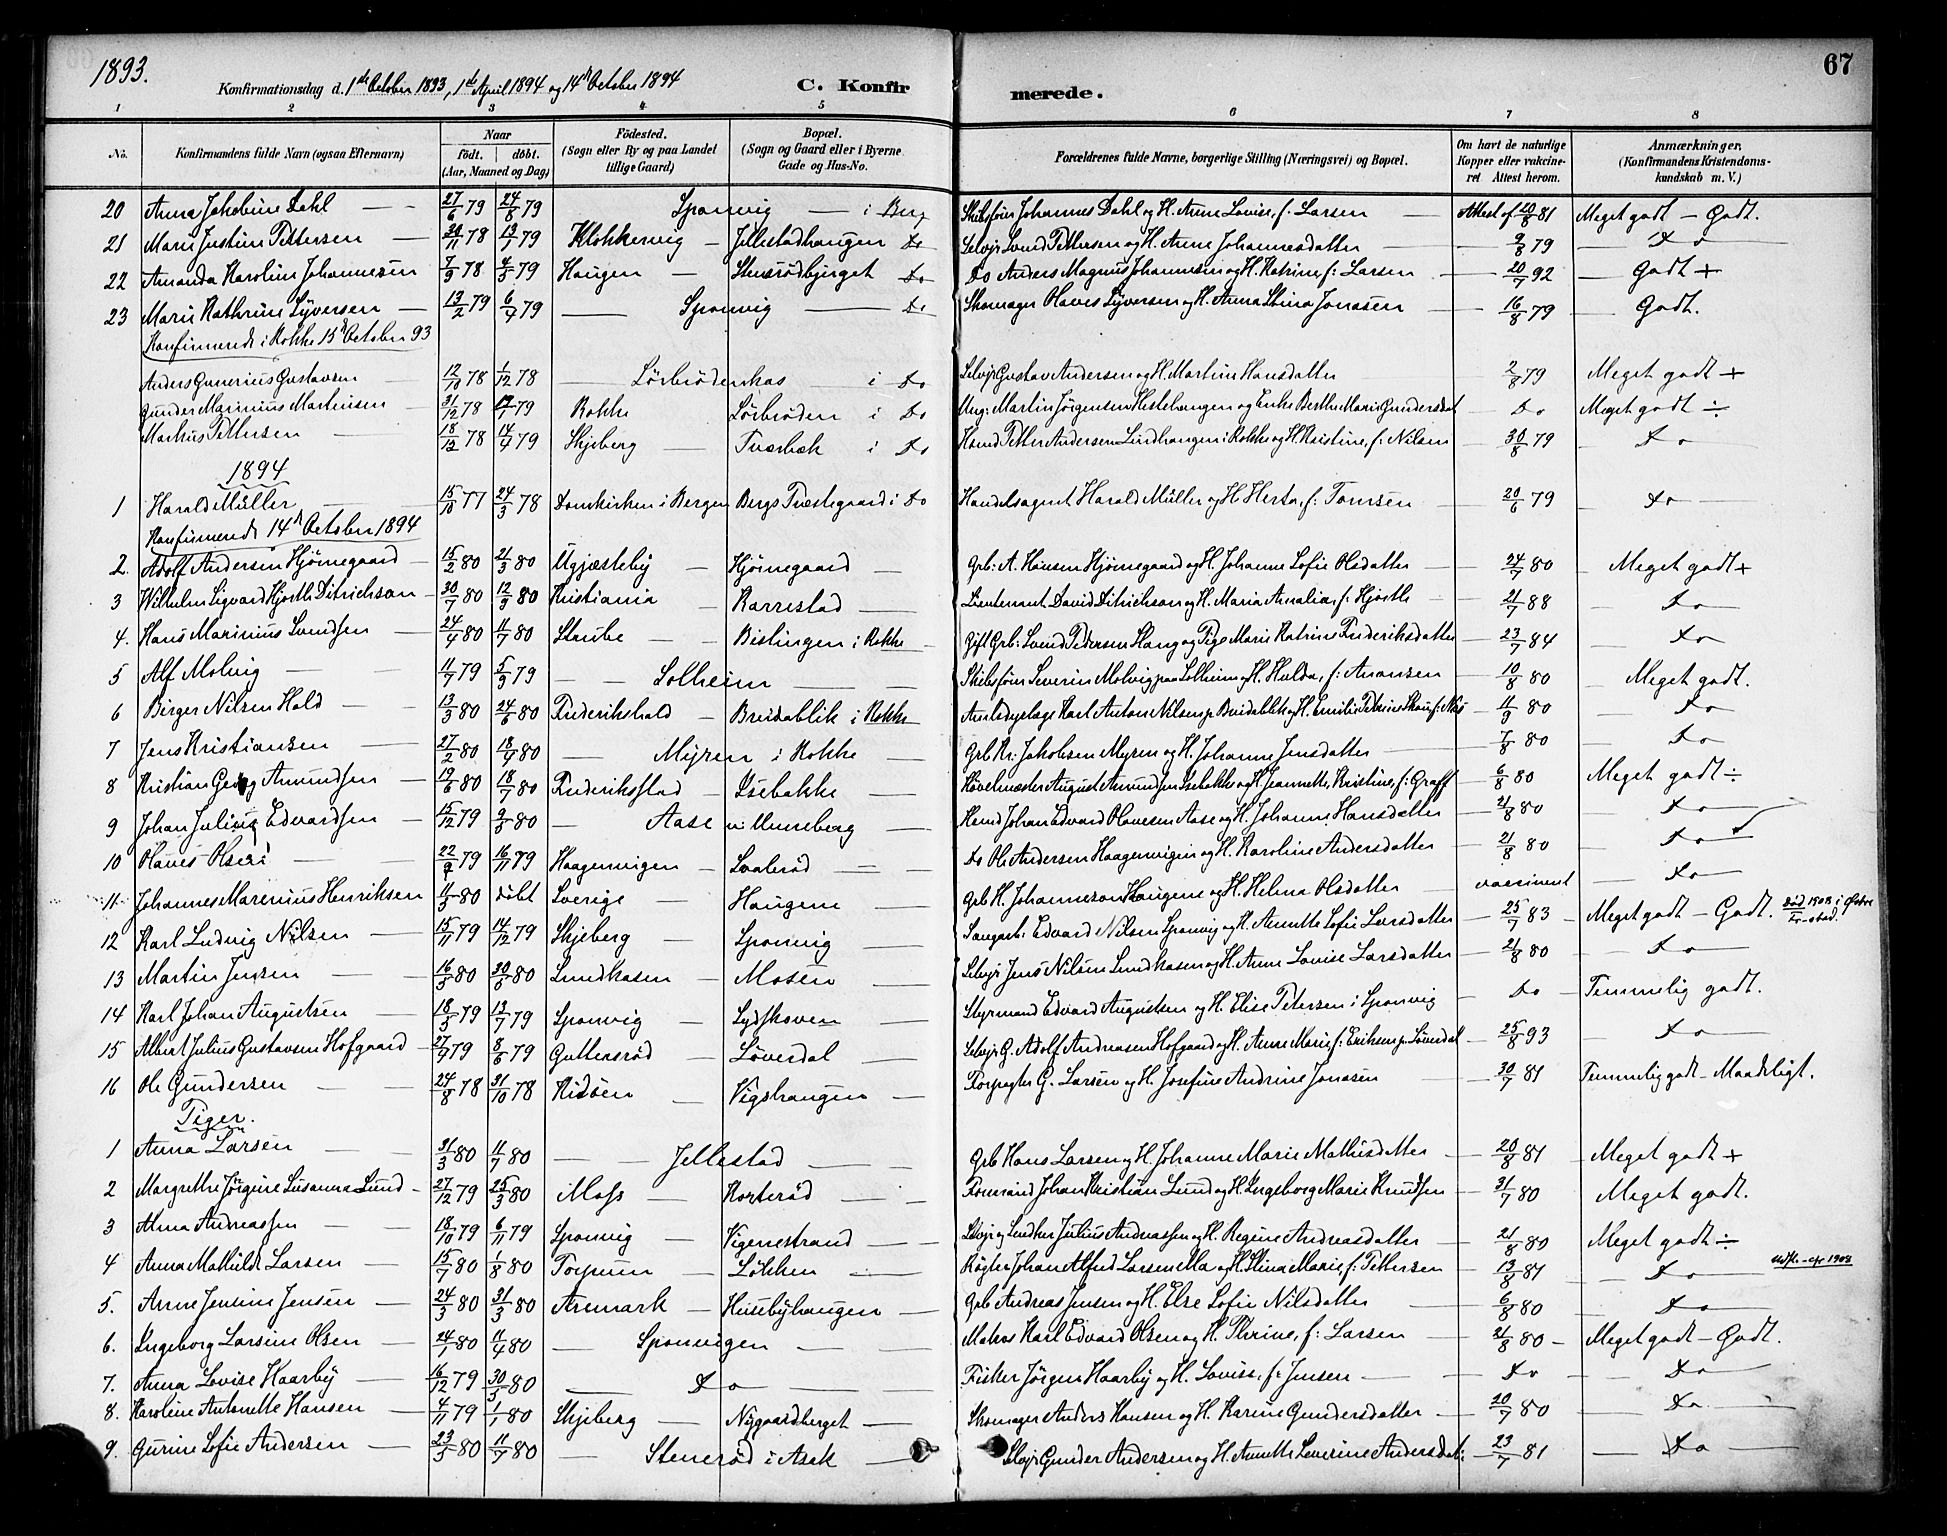 1893.
Konfirmationsdag d. 1ste October 1893, 1ste April 1894 og 14de October 1894
C. Konfirmerede.
67
1 2 3 4 5 6 7 8
No. Konfirmandens fulde Navn (ogsaa Efternavn) Naar født. døbt. (Aar, Maaned og Dag) Fødested. (Sogn eller By og paa Landet tillige Gaard) Bopæl. (Sogn og Gaard eller i Byerne Gade og Hus-No. Forældrenes fulde Navne, borgerlige Stilling (Næringsvei) og Bopæl. Om havt de naturlige Kopper eller vaccineret. Attest herom. Anmærkninger. (Konfirmandens Kristendomskundskab m. V.)
20 Anna Jakobine Dahl 27/6 79 24/8 79 Sponvig i Berg Skibsfører Johannes Dahl og H. Anne Lovise, f. Larsen Attest af 20/8 81 Meget godt - Godt.
21 Marie Justine Pettersen 30/11 78 13/1 79 Klokkervig - Jellestadhaugen Do Selvejr Svend Pettersen og H. Anne Johannesdatter 9/8 79 Do
22 Amanda Karoline Johannesen 7/9 78 4/5 79 Haugen - Stenrødbjerget Do Do Anders Magnus Johannesen og H. Katrine, f: Larsen 20/7 92 Godt +
23 Marie Kathrine Syversen 13/2 79 6/7 79 Sponvig Do Skomager Olaves Syversen og H. Anna Stina Jonasen 16/8 79 Godt.
Konfirmerede i Rokke 15de October 93
Anders Gunerius Gustavsen 12/10 78 1/12 78 Lörbrödenhas i Do Selvejr Gustav Andersen og H. Martine Hansdatter 2/8 79 Meget godt +
Gunder Marinius Martinsen 31/12 78 79 Rokke Lörbröden i Do Ung: Martin Jörgensen Hestehaugen og Enke Berthe Marie Gundersdat Do Meget godt ÷
Markus Pettersen 18/12 78 14/4 79 Skjeberg Tvetbæk i Do Husmd Petter Andersen Lundhaugen i Rokke og H. Kristine, f: Nilsen 30/8 79 Do
1894
1 Harald Müller 15/10 77 24/3 78 Domkirken i Bergen Bergs Præstegaard i Do Handelsagent Harald Müller og H. Herta, f: Tomsen 20/6 79 Do
Konfirmerede 14de October 1894
2. Adolf Andersen Hjörnegaard 15/2 80 21/3 80 Ugjæsteby - Hjörnegaard Grb: A. Hansen Hjörnegaard og H. Johanne Sofie Olsdatter 24/7 80 Meget godt +
3 Wilhelm Sigvard Hjorth Ditrichson 30/7 80 12/9 80 Kristiania - Karrestad Lieutenant David Ditrichson og H. Maria Amalia, f: Hjorth 21/7 88 Do
4. Hans Marinius Svendsen 24/4 80 11/7 80 Stenbe - Bislingen i Rokke Gift Grb: Svend Pedersen Stang og Pige Marie Katrine Frederiksdatter 23/7 84 Do
5 Alf Molvig 11/7 79 5/9 79 Solheim Skibsförer Severin Molvig paa Solheim og H. Hulda, f: Aronsen 10/8 80 Meget godt.
6 Birger Nilsen Hold 13/3 80 24/6 80 Frederikshald - Breidablik i Rokke Karl Anton Nilsen p. Breidablik og H. Emilie 11/9 80 Do
7 Jens Kristiansen 27/2 80 18/4 80 Myren i Rokke Grb Kr: Jakobsen Myren og H. Johanne Jensdatter 7/8 80 Do
8 Kristian Georg Amundsen 19/6 80 18/7 80 Frederikstad - Isebakke Hövelmester August Amundsen Isebakke og H. Jeannette Kristine, f: Graff 6/8 80 Meget godt ÷
9 Johan Julius Edvardsen 15/12 79 9/5 80 Aase v: Unneberg Husmd Johan Edvard Olavesen Aase og H. Johanne Hansdatter 21/8 80 Do
10 Olaves Olsen 22/9 79 16/11 79 Haagenvigen - Svalerød Do Ole Andersen Haagenvigen og H. Karoline Andersdatter 21/8 80 Do
11 Johannes Marenius Henriksen 11/5 80 döbt Sverige - Haugene Grb H. Johanneson Haugene og H. Helena Olsdatter vaccineret Do
12 Karl Ludvig Nilsen 15/11 79 14/12 79 Skjeberg - Sponvig Saugarb: Edvard Nilsen Sponvig og H. Annette Sofie Larsdatter 25/7 83 Meget godt - Godt. död 1903 i
13 Martin Jensen 16/5 80 30/5 80 Lundkasen - Mosen Selvejr Jens Nilsen Lundkasen og H. Anne Lovise Larsdatter 21/8 80 Do
14 Karl Johan Augustsen 18/5 79 13/7 79 Sponvig - Sydskoven Styrmand Edvard Augustsen og H. Elise Petersen i Sponvig Do Temmelig godt.
15 Albert Julius Gustavsen Hofgaard 27/4 79 8/6 79 Guttersröd - Löverdal Selvejr G. Adolf Andreasen Hofgaard og H. Anne Marie, f: Eriksen p. Löverdal 25/8 93 Do
16 Ole Gundersen 24/8 78 31/10 78 Ridsen - Vigshaugen Forpagter G. Larsen og H. Josefine Andrine Jonasen 30/7 81 Temmelig godt - Maadeligt.
Piger.
1 Anna Larsen 31/3 80 11/7 80 Jellestad Grb Hans Larsen og H. Johanne Marie Mathisdatter 20/8 81 Meget godt +
2 Margrethe Jörgine Susanna Lund 27/12 79 25/3 80 Moss - Korteröd Formand Johan Kristian Lund og H. Ingeborg Marie Knudsen 31/7 80 Meget godt.
3 Alma Andreassen 18/10 79 6/11 79 Sponvig - Vigenestrand Selvejr og Snedker Julius Andreassen og H. Regine Andreasdatter 21/8 80 Meget godt ÷
4 Anna Mathilde Larsen 15/7 80 1/8 80 Torpum - Lökken Røgter Johan Alfred Larsen og H. Stina Marie, f: Pettersen 13/8 81 Do 1903
5. Anne Jensine Jensen 24/3 80 31/3 80 Aremark - Husebyhaugen Grb Andreas Jensen og H. Else Sofie Nilsdatter 6/8 80 Do
6. Ingeborg Larsine Olsen 24/1 80 11/4 80 Sponvigen Matros Karl Edvard Olsen og H. Thrine, f: Larsen 21/8 80 Meget godt - Godt.
7. Anna Lovise Haarby 16/12 79 30/3 80 Do Fisker Jörgen Haarby og H. Lovise, f: Jensen Do Do
8. Karoline Antonette Hansen 4/11 79 1/1 80 Skjeberg - Nygaardberget Skomager Anders Hansen og H. Karine Gundersdatter 20/7 80 Do
9. Gurine Sofie Andersen 23/5 80 11/7 80 Steneröd i Asak Selvejr Gunder Andersen og H. Annette Severine Andersdat: 23/7 81 Do